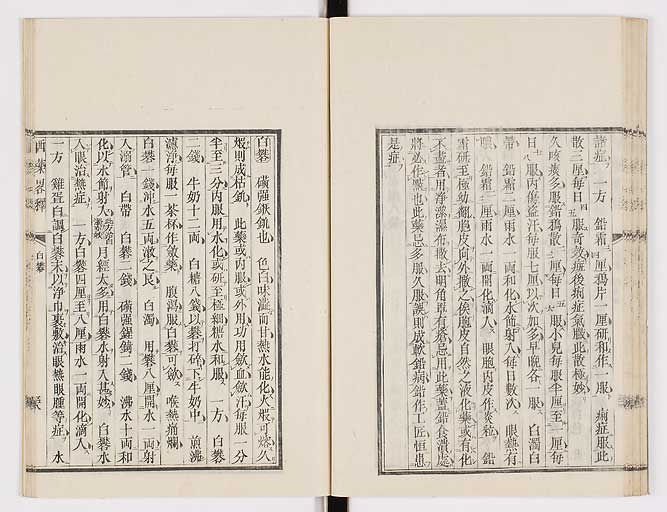 諸症、一方　鉛霜四厘鴉片一厘研和作一服、痢症服此
散三厘每日四五服、奇效症後痢症氣臌此散極妙、
久咳痰多服鉛鴉散三厘每日四五服小兒每服半厘至一厘每
日七八服內傷盜汗每服七厘以次加多早晚各一服、白濁白
帶、鉛霜二厘雨水一両開化和水筒射入每日數次、眼熱有
眼、鉛霜二厘雨水一両開化滴入、眼胞內皮作炎粒、鉛
霜研至極幼翻胞皮向外撒之俟胞皮自然之液化藥或有化
不盡者用淨藻濕布撒去明角罩有蒼忌用此藥蓋鉛食潰處
將必作臌也此藥忌多服久服誤則成軟鉛病鉛作工匠恒也
是症、
白礬　磺强鉄釩也　色白味澁而甘熱水能化火煅可燥久
煅則成枯釩、此藥或內服或外用功用斂血斂汗每服一分
半至三分內服用水化或研至極細糖水和服、一方　白礬
二錢　牛奶十二両　白糖八錢以礬打碎下牛奶中、煎沸
濾淨每服一茶杯作斂藥　腹瀉服白礬可斂、喉熱痛爛
白礬一錢沖水五両漱之良　白濁　用礬八厘開水一両射
入溺管、白帶　白礬二錢　磺强鋅錥二錢　沸水十両和
化以水節射入、月經太多用白礬水射入甚妙　白礬水
入眼治熱症、一方白礬四厘至八厘雨水一両開化滴入、
一方　雞蛋白調白礬末以淨巾裹敷治眼熱眼腫等症、水
西藥畧釋
白礬